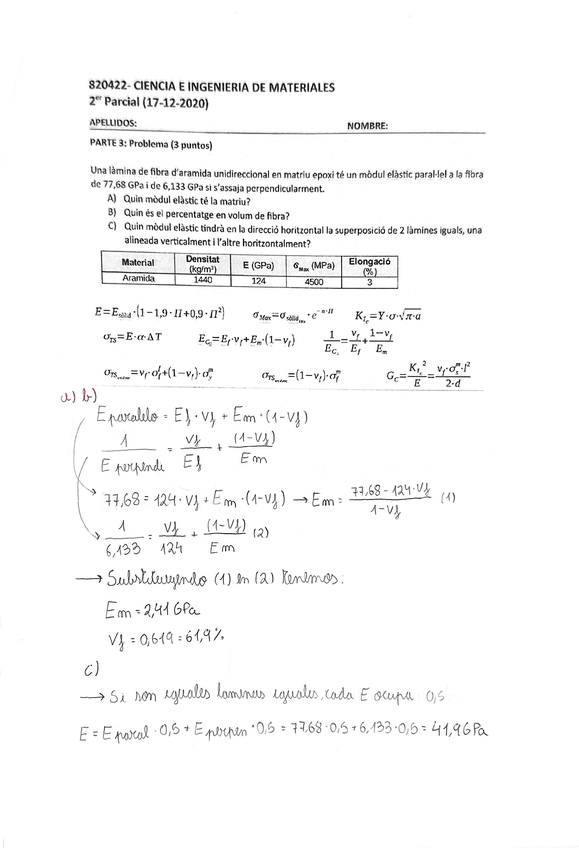 820422- CIENCIA E INGENIERIA DE MATERIALES
2er Parcial (17-12-2020)
APELLIDOS: NOMBRE:
PARTE 3: Problema (3 puntos)
Una làmina de fibra d'aramida unidireccional en matriu epoxi té un mòdul elàstic paral·lel a la fibra
de 77,68 GPa i de 6,133 GPa si s'assaja perpendicularment.
A) Quin mòdul elàstic té la matriu?
B) Quin és el percentatge en volum de fibra?
C) Quin mòdul elàstic tindrà en la direcció horitzontal la superposició de 2 làmines iguals, una
alineada verticalment i l'altre horitzontalment?
Material Densitat (kg/m³) E (GPa) σMax (MPa) Elongació (%)
Aramida 1440 124 4500 3
E=Esòlid·(1−1,9·Π+0,9·Π²) σMax=σsòlidmax·e^−n·Π KIc=Y·σ·√π·a
σTS=E·α·ΔT EC||=Ef·vf+Em·(1−vf) 1/EC⊥=vf/Ef+(1−vf)/Em
σTSmáxim=vf·σf+(1−vf)·σym σTSmáxim=(1−vf)·σfm GC=KIc²/E=vf·σsm·l²/2·d
a) b)
Eparalelo = Ef · Vf + Em · (1-Vf)
1/E perpendi = Vf/Ef + (1-Vf)/Em
77,68 = 124 · Vf + Em · (1-Vf) → Em = (77,68 - 124·Vf)/(1-Vf) (1)
1/6,133 = Vf/124 + (1-Vf)/Em (2)
→ Substituyendo (1) en (2) tenemos:
Em = 2,41 GPa
Vf = 0,619 = 61,9%
c)
→ Si son iguales laminas iguales, cada E ocupa 0,5
E = E paral · 0,5 + E perpen · 0,5 = 77,68·0,5 + 6,133·0,5 = 41,9 GPa